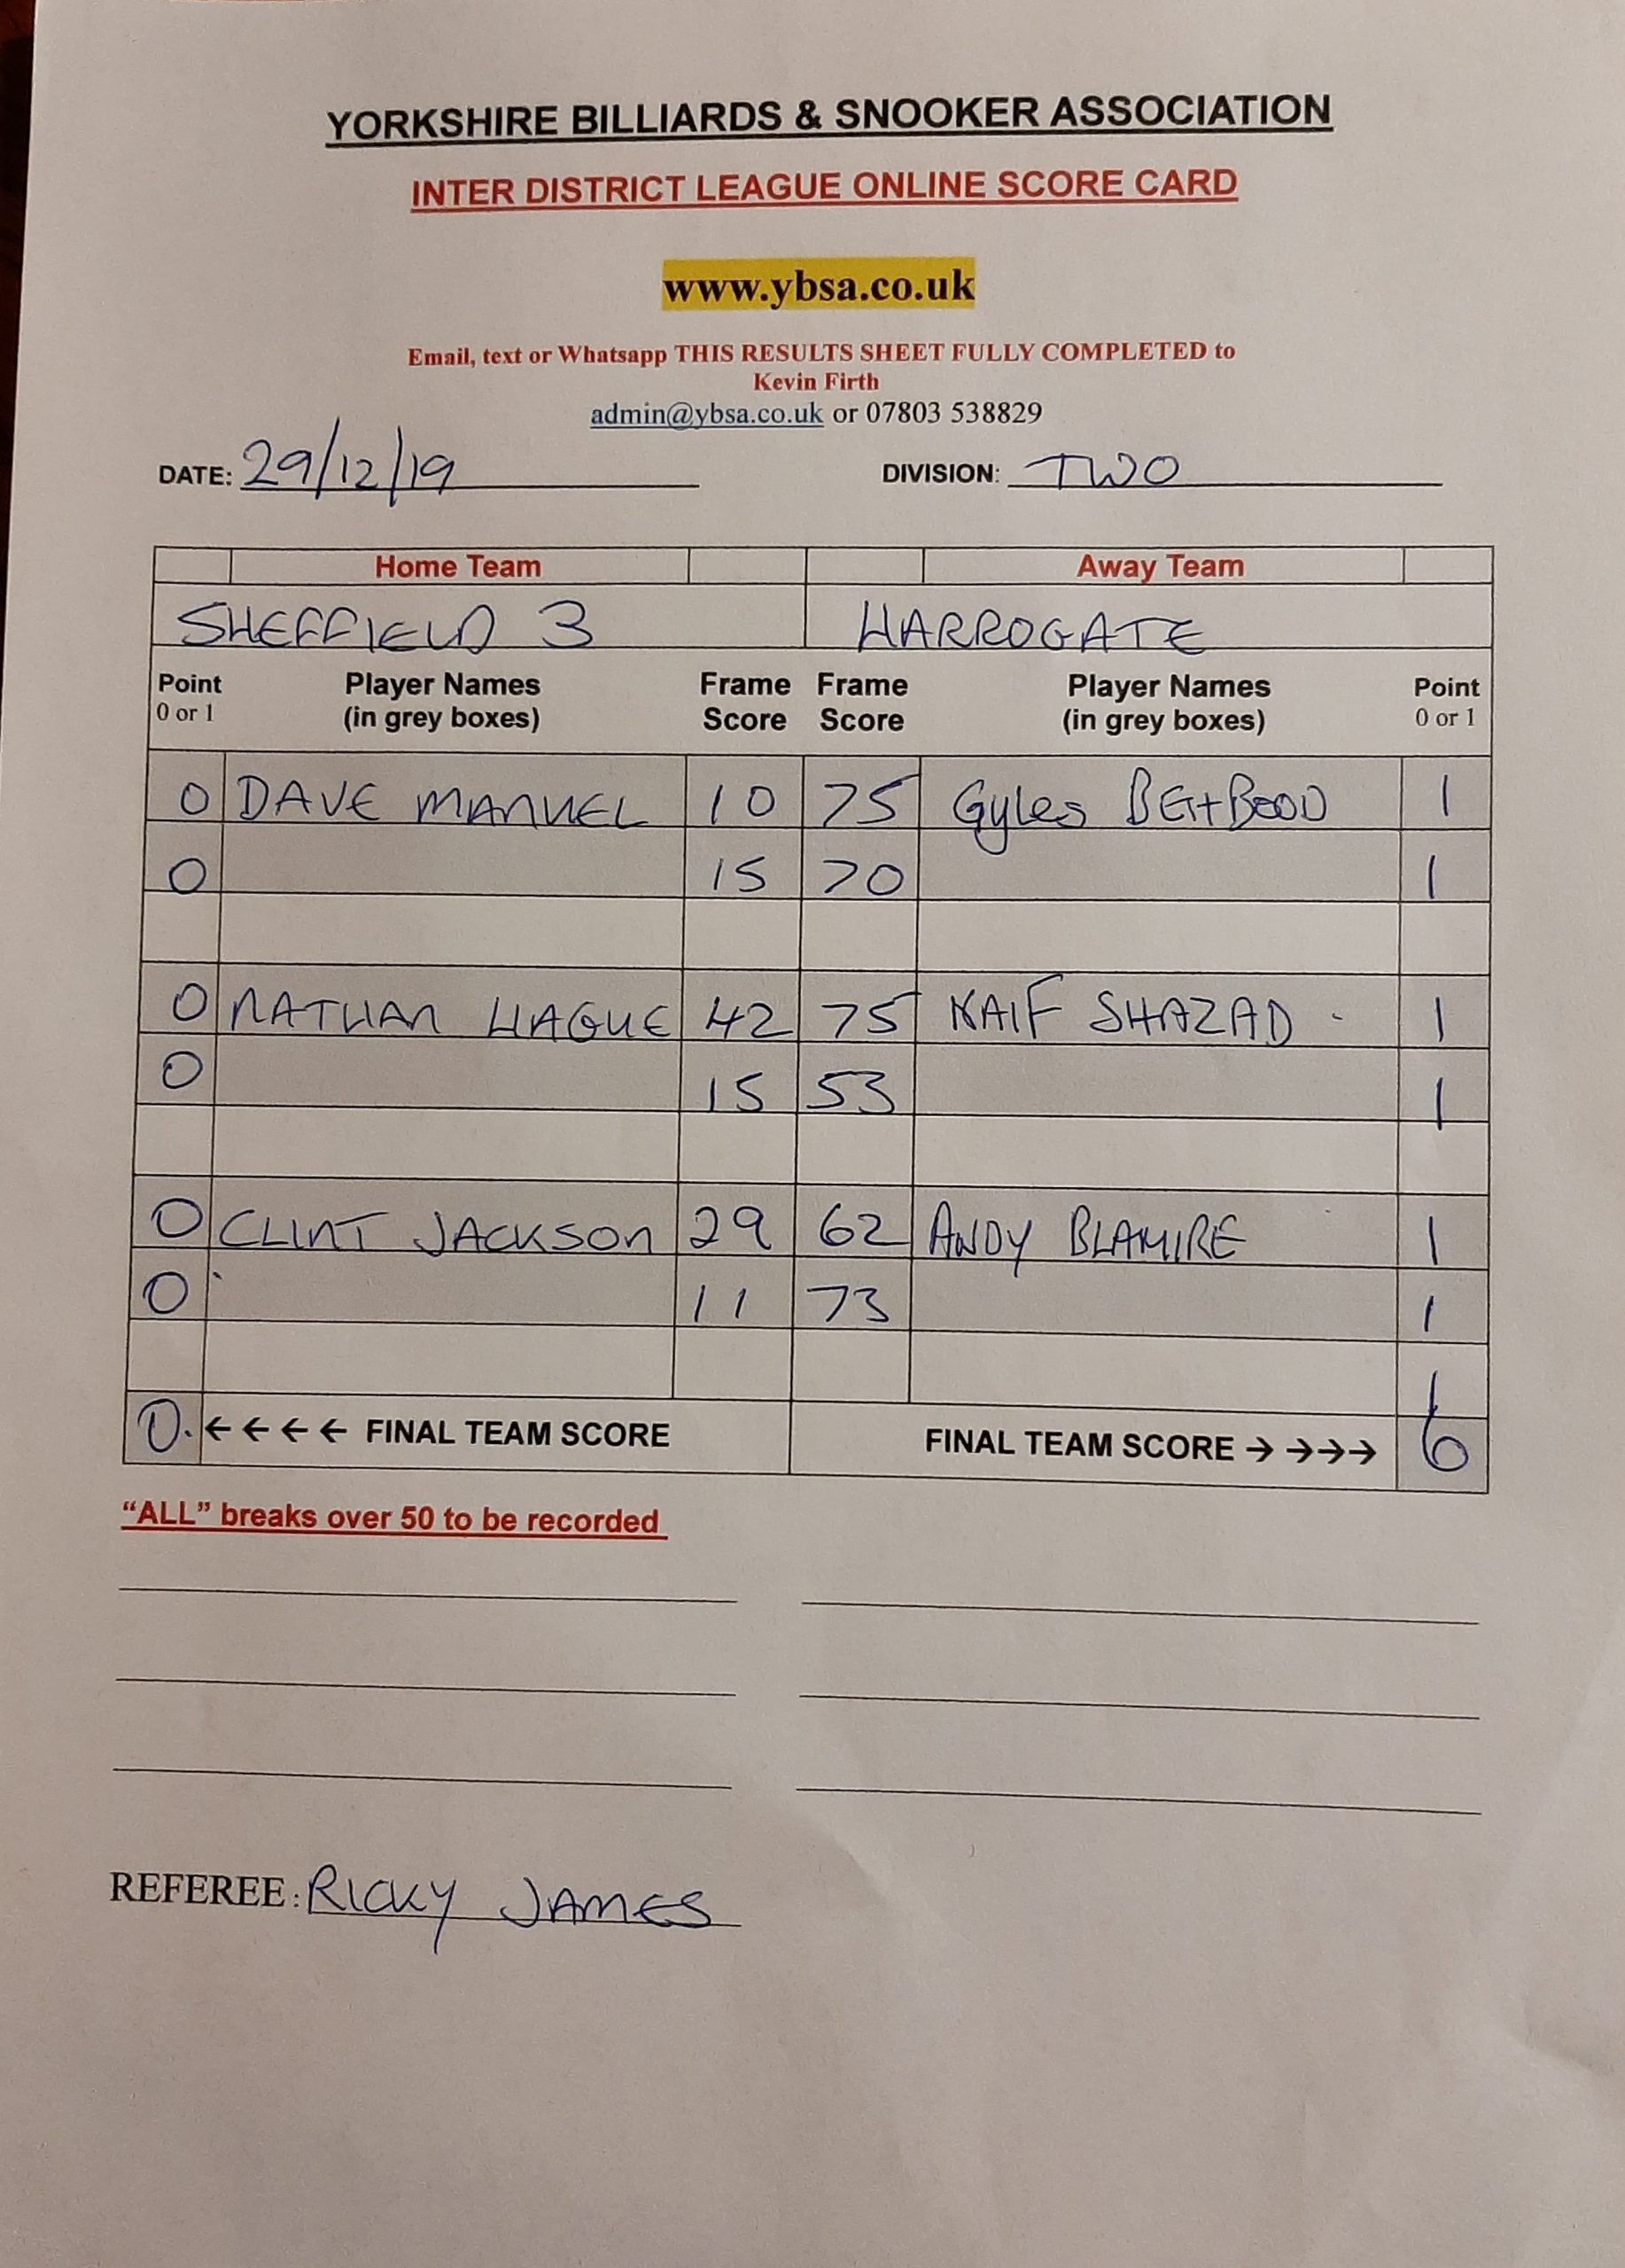 YORKSHIRE BILLIARDS & SNOOKER ASSOCIATION
INTER DISTRICT LEAGUE ONLINE SCORE CARD
www.ybsa.co.uk
Email, text or Whatsapp THIS RESULTS SHEET FULLY COMPLETED to
Kevin Firth
admin@ybsa.co.uk or 07803 538829
DATE: 29/12/19 DIVISION: TWO
Home Team Away Team
SHEFFIELD 3 HARROGATE
Point Player Names Frame Frame Player Names Point
0 or 1 (in grey boxes) Score Score (in grey boxes) 0 or 1
0 DAVE MANUEL 10 75 Gyles 1
0 15 70 1
0 NATHAN HAGUE 42 75 KAIF SHAZAD 1
0 15 53 1
0 CLINT JACKSON 29 62 ANDY BLAMIRE 1
0 11 73 1
0. ←←←← FINAL TEAM SCORE FINAL TEAM SCORE →→→→ 6
"ALL" breaks over 50 to be recorded
REFEREE: RICKY JAMES